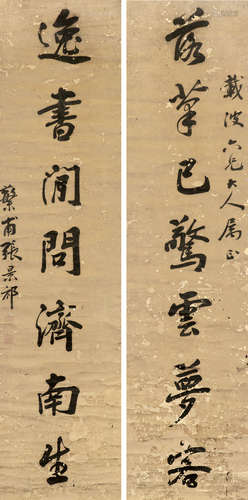 載波六兄大人属正
落筆已驚雲夢客
逸書閒問濟南生
蘩甫張景祁